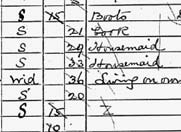 S 15 Boots
S 21 Cook
S 29 Housemaid
S 33 Housemaid
Wid 36 Living on own
S 20
S 15
70